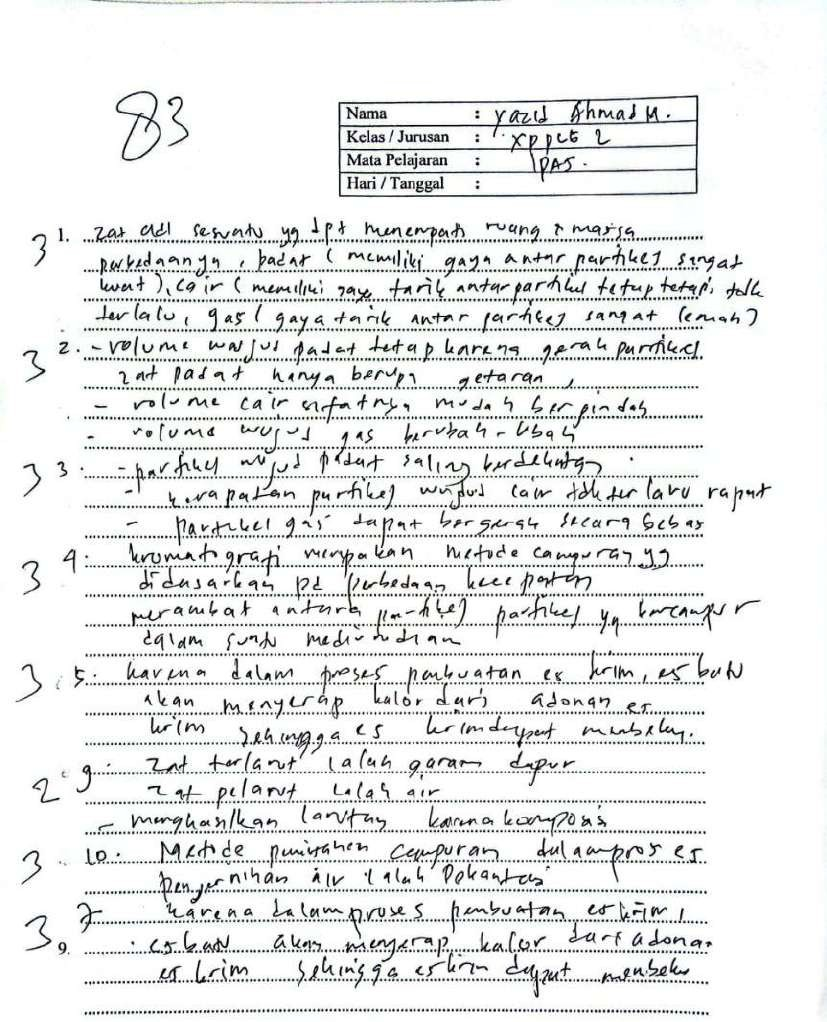 83
Nama : Yazid Ahmad M.
Kelas / Jurusan : X PPLG 2
Mata Pelajaran : IPAS.
Hari / Tanggal :
3 1. Zat adl sesuatu yg dpt menempati ruang & massa
perbedaannya, padat (memiliki gaya antar partikel sangat
kuat), cair (memiliki gaya tarik antar partikel tetap tetapi tdk
terlalu, gas (gaya tarik antar partikel sangat lemah)
3 2. - volume wujud padat tetap karena gerak partikel
zat padat hanya berupa getaran,
- volume cair sifatnya mudah berpindah
- volume wujud gas berubah-ubah
3 3. - partikel wujud padat saling berdekatan.
- kerapatan partikel wujud cair tdk terlalu rapat
- partikel gas dapat bergerak secara bebas
3 4. kromatografi merupakan metode campuran yg
didasarkan pd perbedaan kecepatan
merambat antara partikel partikel yg bercampur
dalam suatu medium
3 5. karena dalam proses pembuatan es krim, es batu
akan menyerap kalor dari adonan es
krim sehingga es krim dapat membeku.
2 9. zat terlarut ialah garam dapur
zat pelarut ialah air
- menghasilkan larutan karena komposisi
3 10. Metode pemisahan campuran dalam proses
penjernihan air ialah Dekantasi
3 7 karena dalam proses pembuatan es krim,
9. es batu akan menyerap kalor dari adonan
es krim sehingga es krim dapat membeku